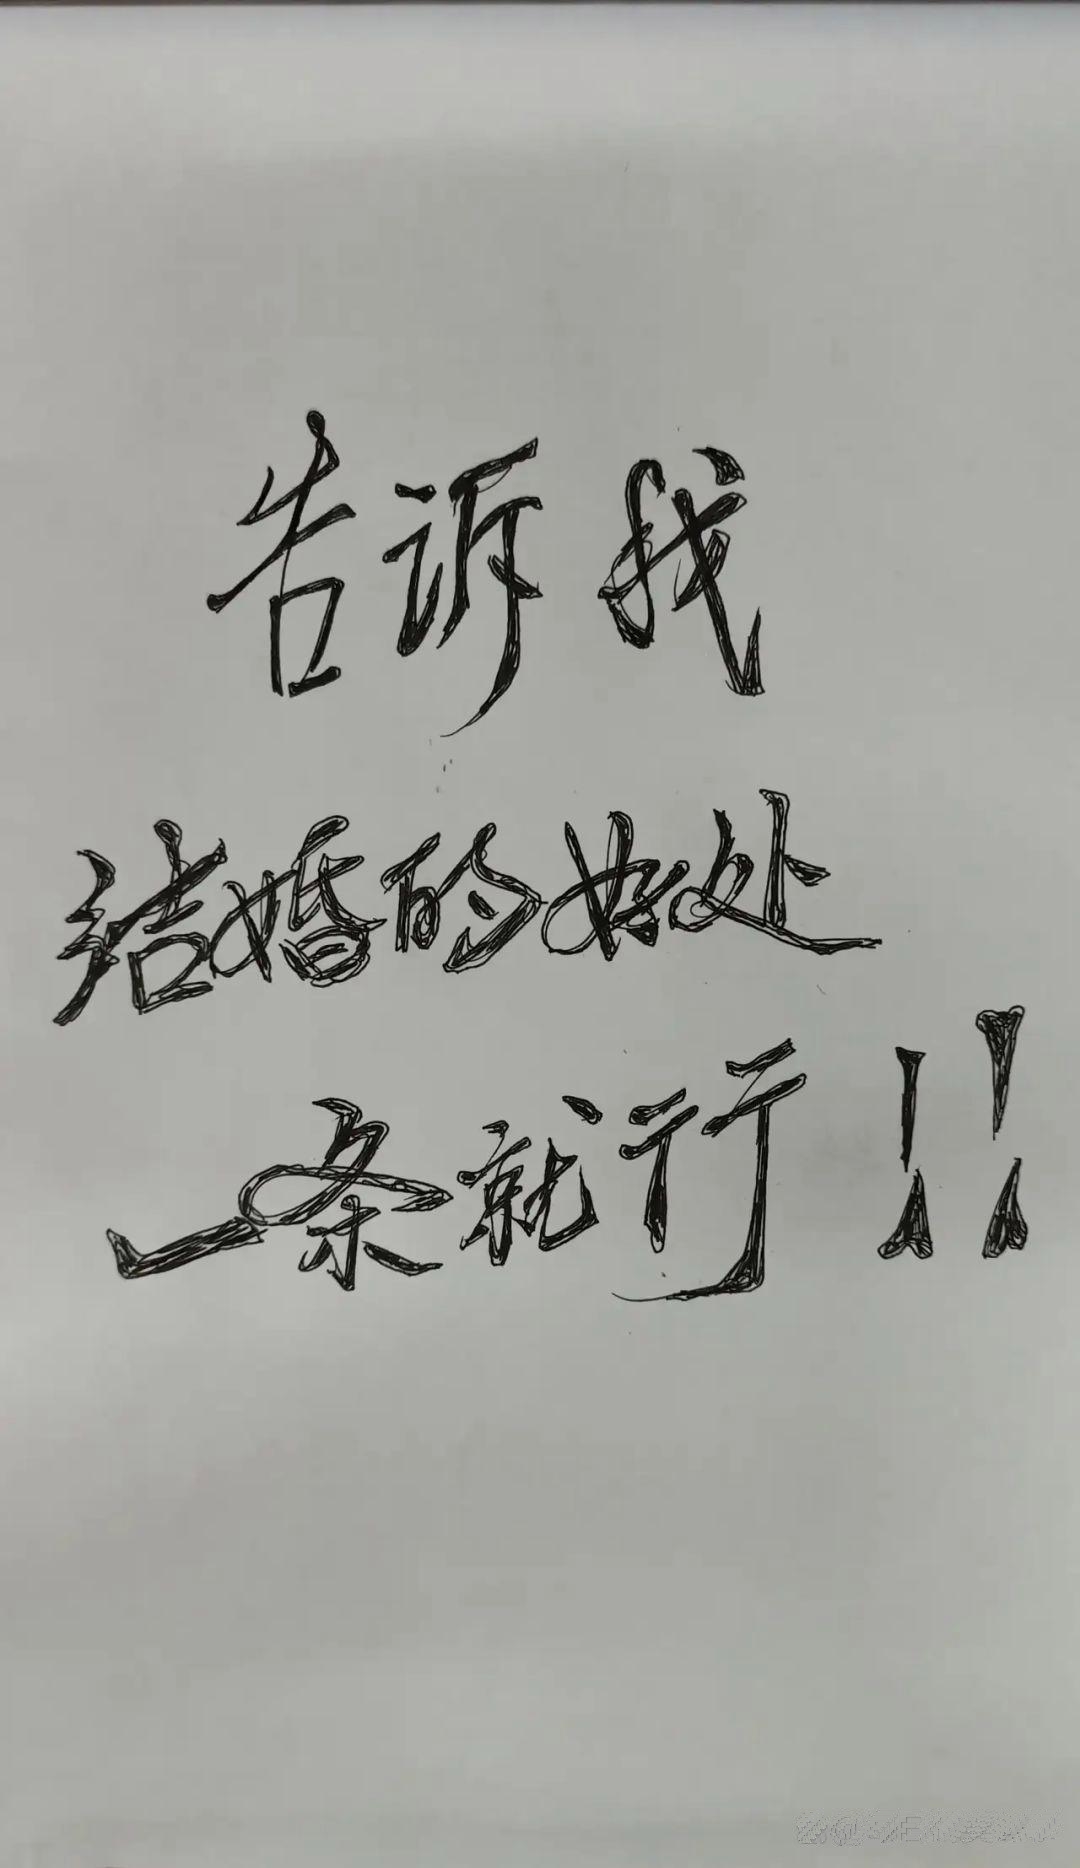 告诉我
结婚的好处
一条就行!!